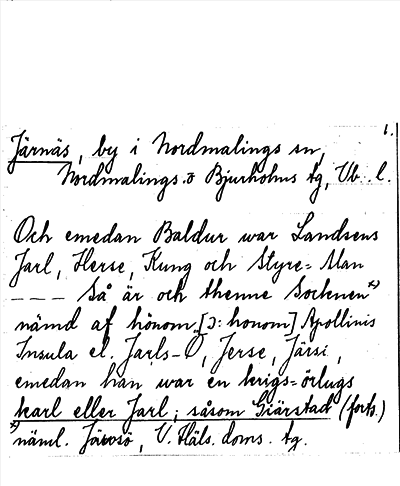 1.
Järnäs, by i Nordmalings sn,
Nordmalings o Bjurholms tg, Vb. l.
Och emedan Baldur war Landsens
Jarl, Herse, Kung och Styres-Man
— — — Så är och thenne Socknen *)
nämd af hönom [ɔ: honom] Apollinis
Insula el. Jarls-Ö, Jerse, Järsi,
emedan han war en krigs-örlugs
karl eller Jarl; såsom Giärstad (forts.)
*) näml. Järvsö, V. Häls. doms. tg.